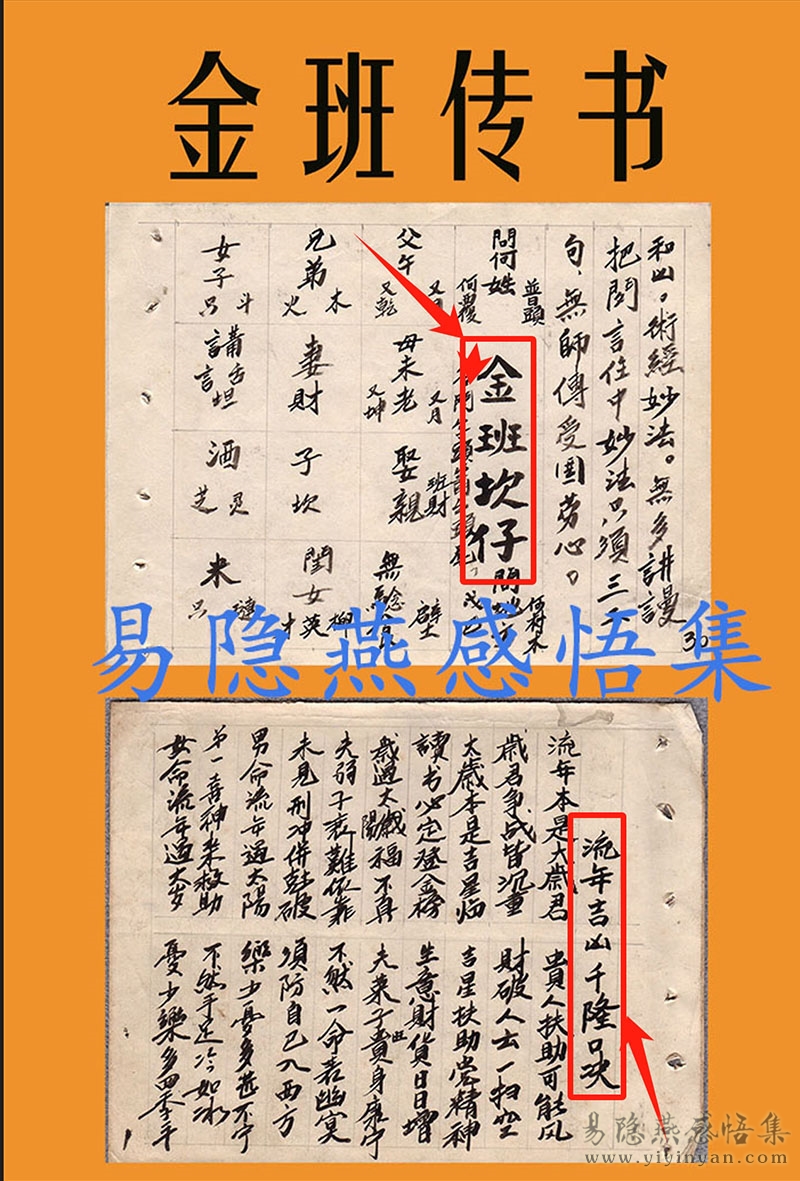 金班传书
和凶。術經妙法。無多講謾
把閉言住中妙法只須三
句，無師傳受困勞心。
問何姓
並冒頭
金班坎仔
問
何村
父午
又乾
母未老
又坤
又月
娶親
班財
無
兄弟
火 木
妻財
子坎
閨女
才英柳
女子
只 斗
酒
芝 見
米
只
30
易隐燕感悟集
流年吉凶千隆口决
流年本是大歲君 貴人扶助可能风
歲君争战皆沉重 財破人亡一扫空
太歲本是吉星临 吉星扶助党精神
讀书必定登金榜 生意財貨日日增
歲遇太陽福不真 夫荣子貴身康宁
夫弱子衰難依靠 不然一命若幽冥
未見刑冲併彭破 須防自己入西方
男命流年遇太陽 樂少憂多甚不宁
第一喜神来救助 不然手足冷如冰
女命流年遇太岁 憂少樂多四季平
易隐燕感悟集
www.yiyinyan.com